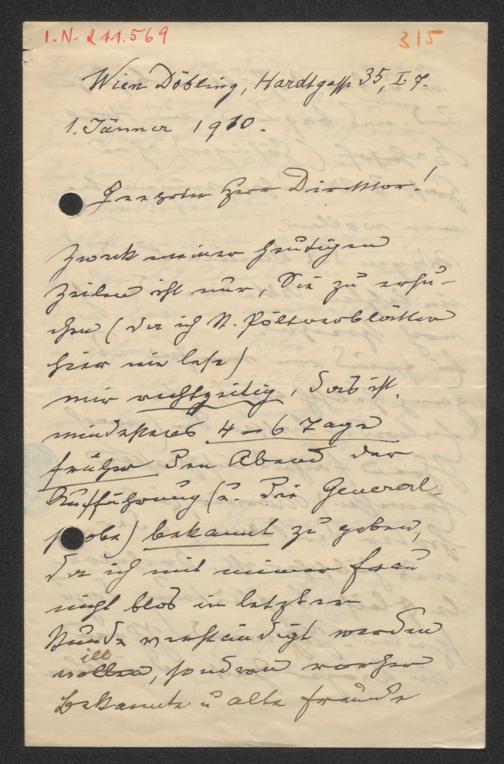 I.N. 211.569
315
Wien Döbling, Hardtgasse 35, I. 7.
1. Jänner 1910.
Geehrter Herr Direktor!
Zweck meiner heutigen
Zeilen ist nur, Sie zu ersu-
chen (da ich St. Pöltnerblätter
hier nie lese)
mir rechtzeitig, das ist,
mindestens 4–6 Tage
früher den Abend der
Aufführung (u. die General-
probe) bekannt zu geben,
da ich mit meiner Frau
nicht blos in letzter
Stunde verständigt werden
will, sondern vorher
bekannte u alte Freunde